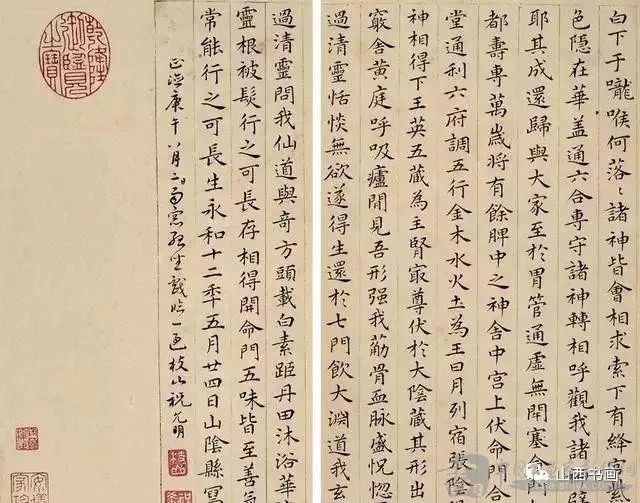 白下于嚨喉何落〻諸神皆會相求索下有絳宮
色隱在華盖通六合專守諸神轉相呼觀我諸
耶其成還歸與大家至於胃管通虛無閉塞命
都壽專萬歲將有餘脾中之神舍中宮上伏命門合
堂通利六府調五行金木水火土為王日月列宿張陰
神相得下王英五蔵為主腎㝡尊伏於大陰藏其形出
竅舍黄庭呼吸廬間見吾形强我筋骨血脉盛怳惚
過清靈恬惔無欲遂得生還於七門飲大淵道我玄
過清靈問我仙道與奇方頭載白素距丹田沐浴華
靈根被髮行之可長存相得開命門五味皆至善氣
常能行之可長生永和十二年五月廿四日山陰縣寫
正德庚午八月二日雨窓孤坐戯臨一過枝山祝允明
山西书画